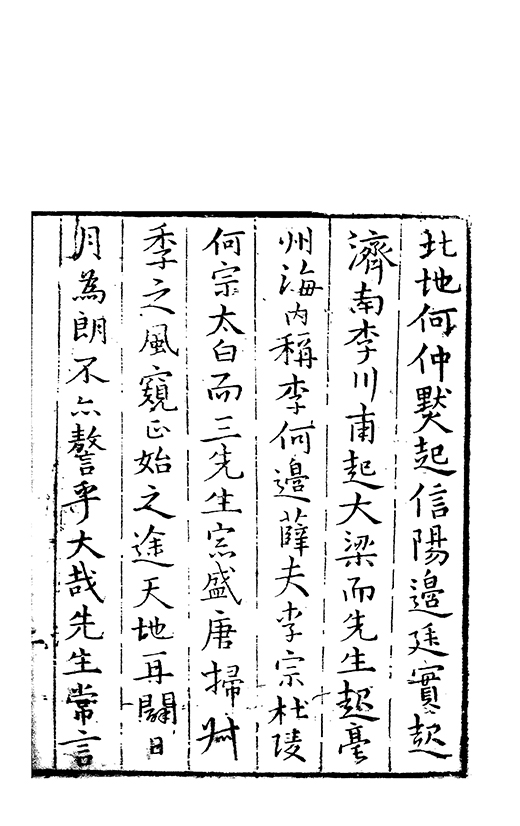 北地何仲默起信陽邊廷實起
濟南李川甫起大梁而先生起亳
州海內稱李何邊薛夫李宗杜陵
何宗太白而三先生宗盛唐掃叔
季之風窺正始之途天地再闢日
月為朗不亦謷乎大哉先生常言